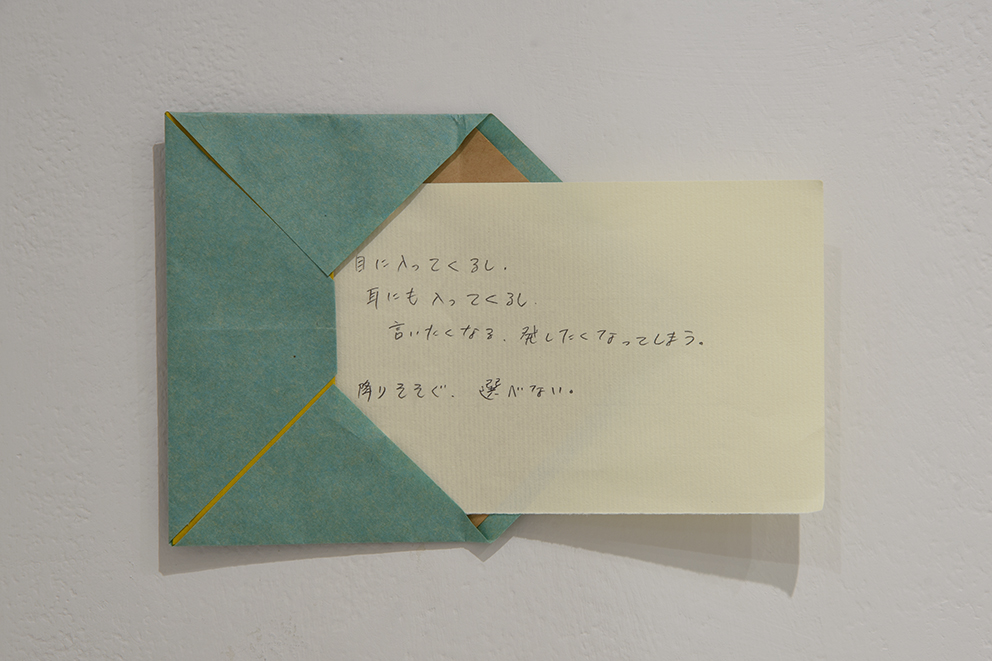 目に入ってくるし.
耳にも入ってくるし.
言いたくなる、発したくなってしまう。
降りそそぐ、選べない。